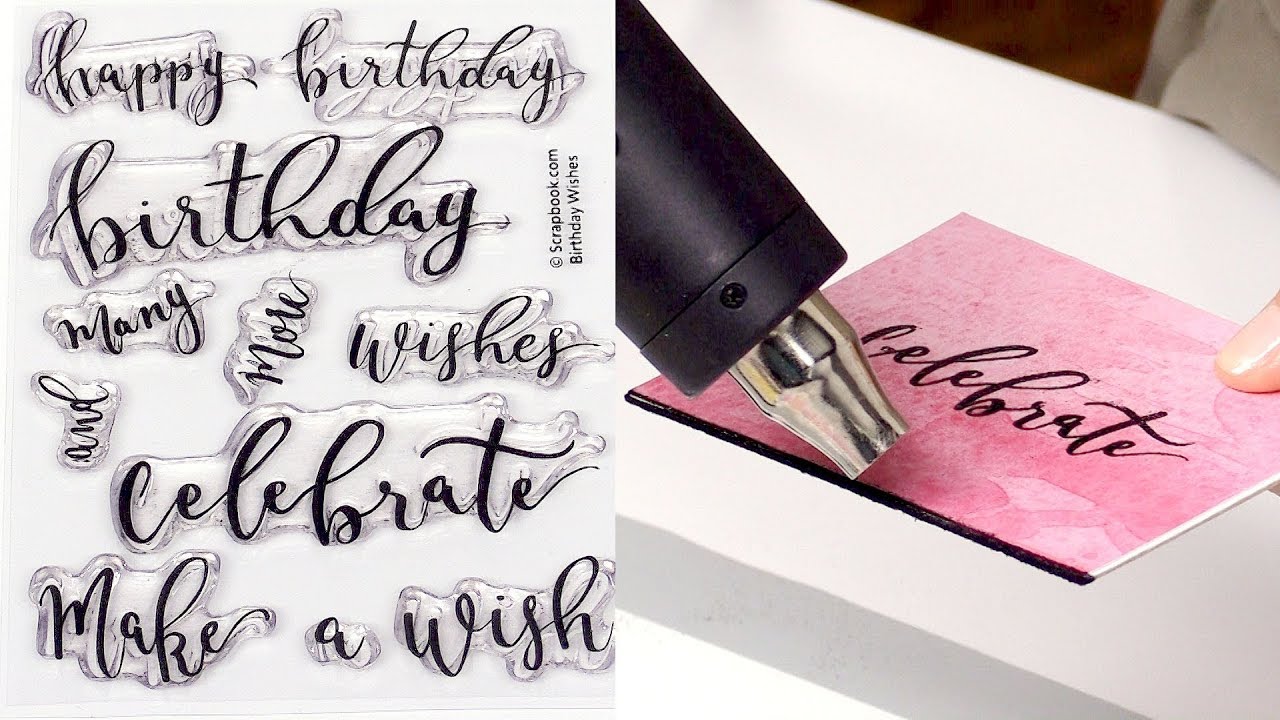 happy birthday
birthday
© Scrapbook.com
Birthday Wishes
many more wishes
and
celebrate
Make a wish
celebrate